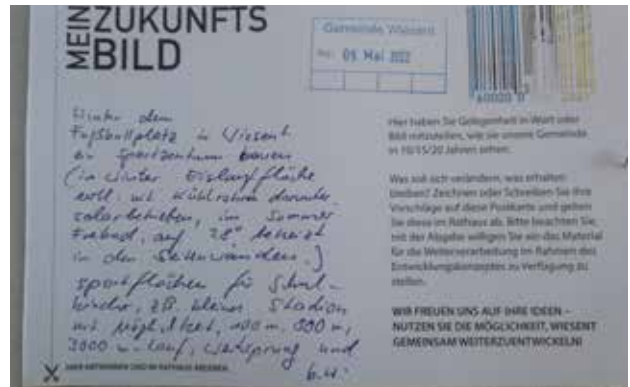 MEIN ZUKUNFTS
BILD
Gemeinde Wiesent
09. Mai 2022
60020 0
Hinter dem
Fußballplatz in Wiesent
ein Sportzentrum bauen
(im Winter Eislauffläche
evtl. mit Kühlrohren darunter
solarbetrieben, im Sommer
Freibad, auf 28° beheizt
in den Seitenwänden.)
Sportflächen für Schul-
kinder, zB kleines Stadion
mit Möglichkeit, 100 m, 800 m,
3000 m-Lauf, Weitsprung und
Hier haben Sie Gelegenheit in Wort oder
Bild mitzuteilen, wie sie unsere Gemeinde
in 10/15/20 Jahren sehen.
Was soll sich verändern, was erhalten
bleiben? Zeichnen oder Schreiben Sie Ihre
Vorschläge auf diese Postkarte und geben
Sie diese im Rathaus ab. Bitte beachten Sie,
mit der Abgabe willigen Sie ein das Material
für die Weiterverarbeitung im Rahmen des
Entwicklungskonzeptes zu Verfügung zu
stellen.
WIR FREUEN UNS AUF IHRE IDEEN –
NUTZEN SIE DIE MÖGLICHKEIT, WIESENT
GEMEINSAM WEITERZUENTWICKELN!
HIER ABTRENNEN UND IM RATHAUS ABGEBEN